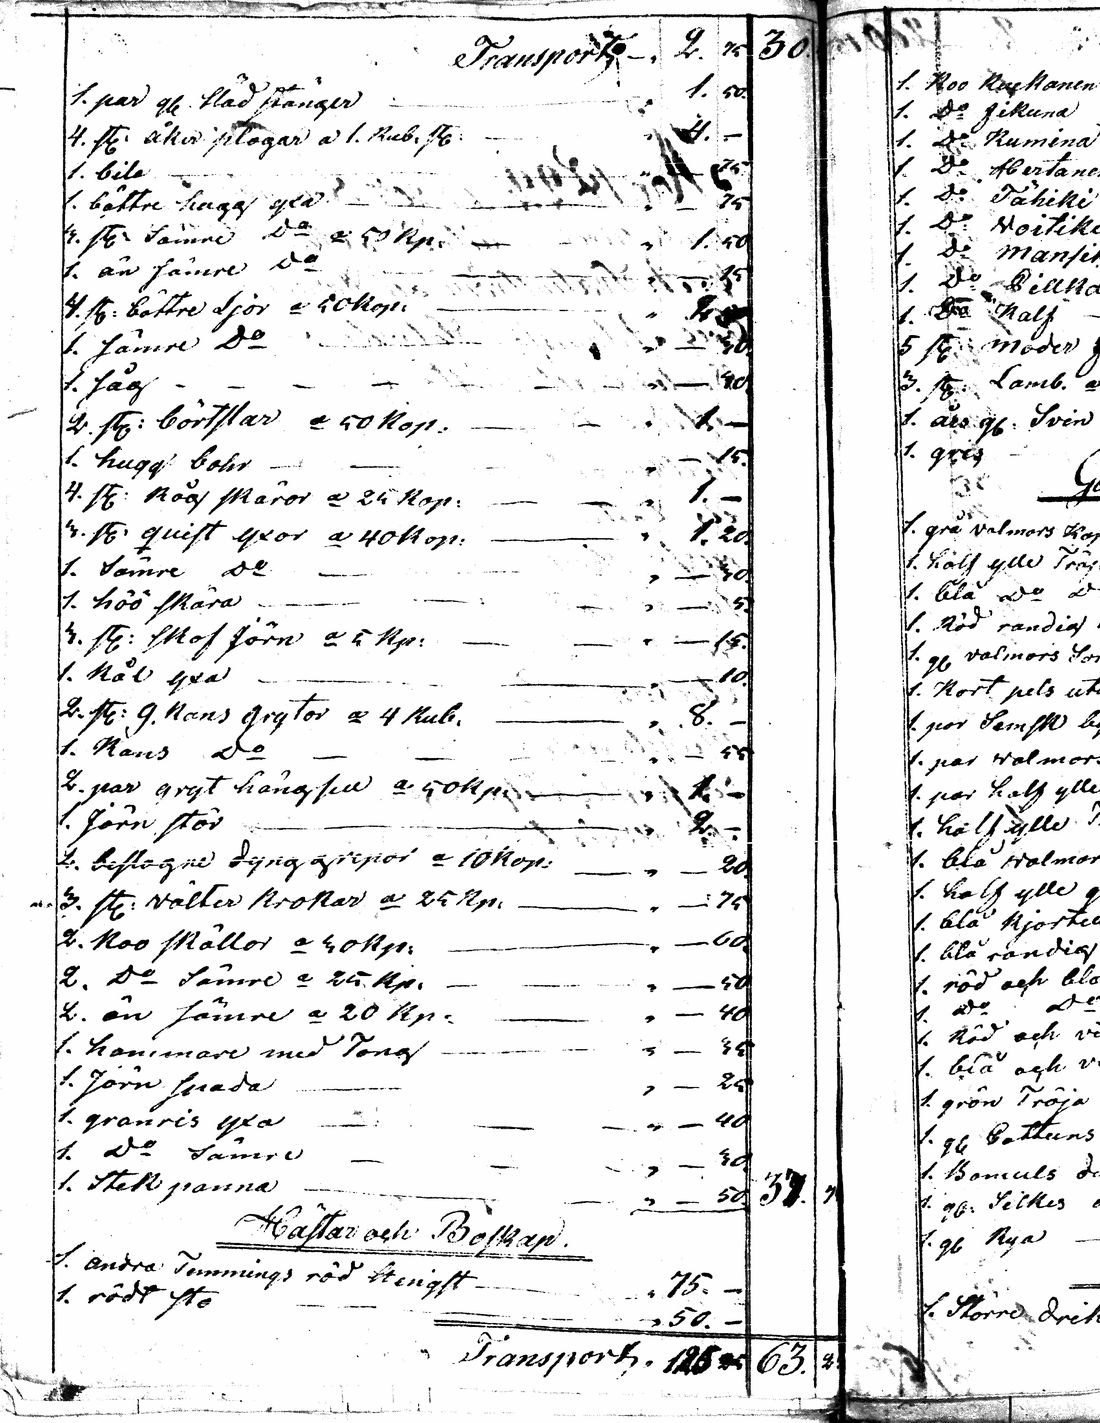 Transport 2. 75 30.
1. par gl. släd stänger 1. 50.
4. st: åker plogar a 1. Rub. st: 4. –
1. bila – 75
1. bättre hugg yxa – 75
3. st: Sämre Do a 50 Kp: 1. 50
1. än sämre Do – 15
4. st: bättre Ljor a 50 Kop: 2.
1. sämre Do – 30.
1. såg – 30.
2. st: börstlar a 50 Kop. 1. –
1. hugg bohr – 15.
4. st: Råg skäror a 25 Kop: 1. –
3. st: quist yxor a 40 Kop: 1. 20.
1. Sämre Do – 30.
1. höö skära – 5.
3. st: skof Jörn a 5 Kp: – 15.
1. Kål yxa – 10.
2. st: 9. Kans grytor a 4 Rub. 8. –
1. Kans Do – 55
2. par gryt hängslee a 50 Kp. 1. –
1. Jörn stör 2. –
2. beslagne dyng grepor a 10 Kop: – 20.
3. st: välter Krokar a 25 Kp. – 75
2. Koo skällor a 30 Kp: – 60.
2. Do Sämre a 25 Kp. – 50
2. än sämre a 20 Kp. – 40
1. hammare med Tong – 35
1. Jörn spada – 25
1. granris yxa – 40
1. Do Sämre – 30.
1. Stek panna – 50 37.
Hästar och Boskap.
1. andra Temmings röd Hengst 75. –
1. rödt sto 50. –
Transport. 125 25 63.
1. Koo Kuckanen
1. Do Jikuna
1. Do Kumina
1. Do
1. Do Tähiki
1. Do Voitike
1. Do Mansik
1. Do Pillka
1. Do Kalf
5 st: moder
3. st: Lamb. a
1. års gl. Svin
1. gris
1. grå valmars Kap
1. half ylle Tröj
1. blå Do D
1. Röd randig
1. gl valmars
1. Kort pels ut
1. par Semsk
1. par valmars
1. par half ylle
1. half ylle T
1. blå valmar
1. half ylle g
1. blå Kjortel
1. blå randig
1. röd och blå
1. Do Do
1. Röd och vi
1. blå och v
1. grön Tröja
1. gl Cattuns
1. Bomuls d
1. gl. Silkes
1. gl Rya
1. Större drik